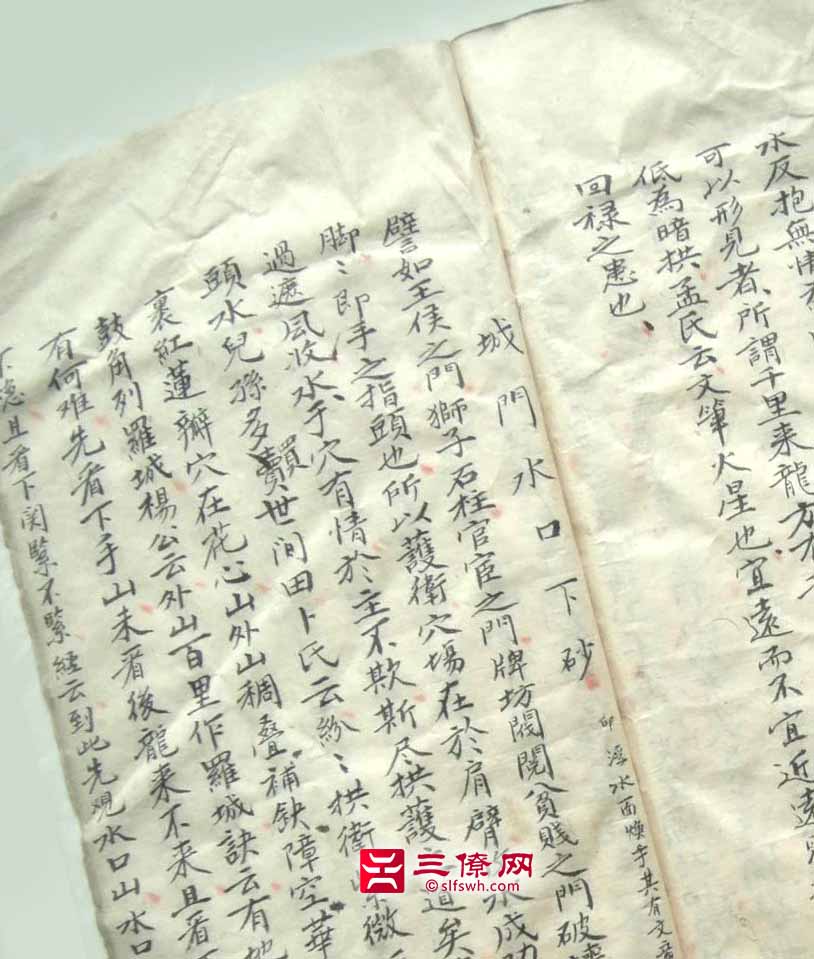 水反抱無情
可以形見者、所謂千里来龍方有
低為暗拱孟氏云文筆火星也宜遠而不宜近遠
回禄之患也、
浮水面
城門水口下砂
譬如王侯之門獅子石柱官宦之門牌坊閥閱貧賤之門破
脚〻即手之指頭也所以護衛穴場在於肩臂 水成
過遮風收水手、穴有情於主不欺斯尽拱護之道矣
頭水兒孫多買賣世间田卜氏云紛〻拱衛紫微
裏紅蓮瓣穴在花心山外山稠叠補缺障空華
鼓角列羅城楊公云外山百里作羅城訣云有地
有何难先看下手山未看後龍来不来且看
且看下関緊不緊經云到此先观水口山水口
三僚网
©slfswh.com